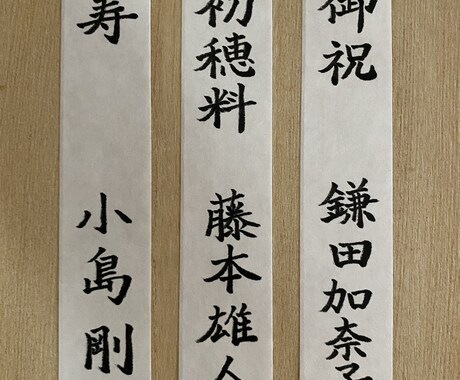 御祝　鎌田加奈子
初穂料　藤本雄人
寿　小島剛